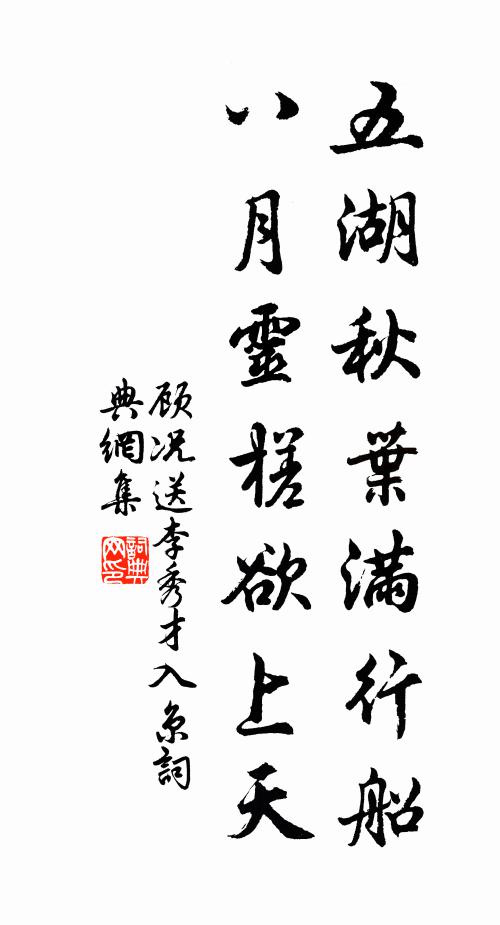 五湖秋葉满行船
八月靈槎欲上天
顾况送李秀才入京詞
典網集
詞典网印